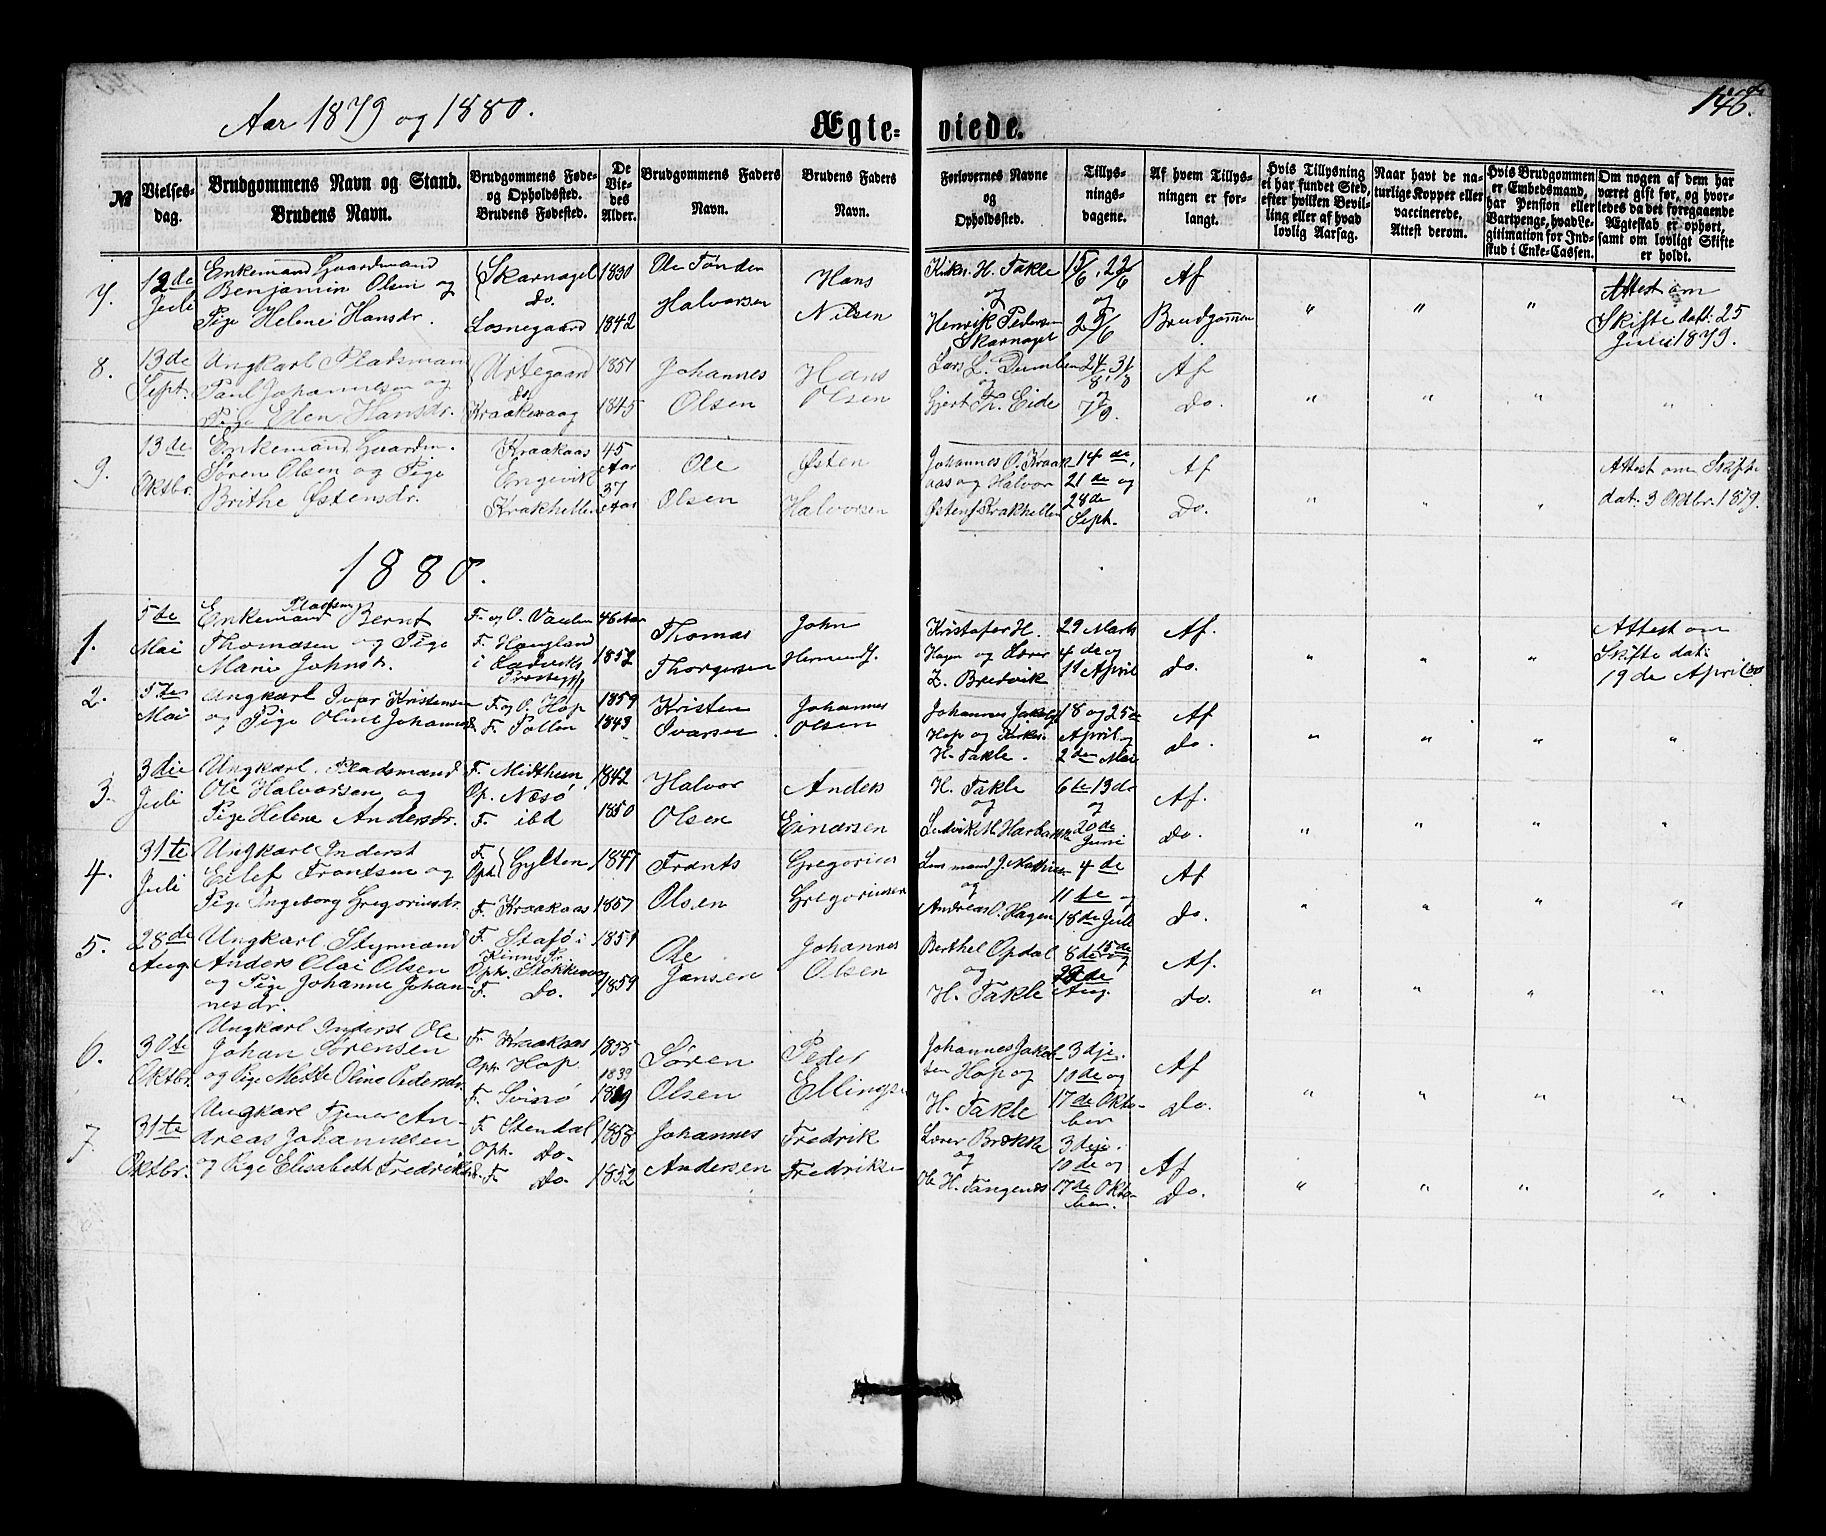 Aar 1879 og 1880.
Ægte- viede.
146.
№
Vielses-dag.
Brudgommens Navn og Stand.
Brudens Navn.
Brudgommens Føde- og Opholdssted.
Brudens Fødested.
De Viedes Alder.
Brudgommens Faders Navn.
Brudens Faders Navn.
Forlovernes Navne og Opholdssted.
Tillysningsdagene.
Af hvem Tillysningen er forlangt.
Hvis Tillysning ei har fundet Sted, efter hvilken Bevilling eller af hvad lovlig Aarsag.
Naar havt de naturlige Kopper eller vaccinerede, Attest derom.
Hvis Brudgommen er Embedsmand, har Pension eller Vartpenge, hvad Legitimation for Indskud i Enke-Cassen.
Om nogen af dem har været gift før, og hvorledes da det foregaaende Ægteskab er ophørt, samt om lovligt Skifte er holdt.
7. 12de Juli
Enkemand Gaardmand
Benjamin Olsen og
Pige Helene Hansdr.
Skarnagel Do. Losnegaard
1830 1842
Ole Tønder Halvorsen
Hans Nilsen
Kirkes. H. Takle og Henrik Pedersen Skarnagel
15/6, 22/6 og 2
Af Brudgommen
" " "
Attest om Skifte dat: 25 Juli 1879.
8. 13de Sept.
Ungkarl Pladsmand
Paul Johannesen og
Pige Elen Hansdr.
Urtegaard Do Kraakevaag
1851 1845
Johannes Olsen
Hans Olsen
Lars L. Dumben og Gjert Th. Eide
24/8, 31/8 og 7/9.
Af Do.
" " " "
9. 13de Oktbr.
Enkemand Gaardm.
Søren Olsen og Pige
Brithe Østensdr.
Kraakaas Engevik Krakhellen
45 Aar 37 Aar
Ole Olsen
Østen Halvorsen
Johannes O. Kraakaas og Halvor Østens Krakhellen
14de, 21de og 28de Sept.
Af Do.
" " "
Attest om Skifte dat. 3 Oktbr. 1879.
1880.
1. 5te Mai
Enkemand Pladsm Bernt
Thomasen og Pige
Marie Johnsdr.
F. og O. Vaulen F. Haugland i Ladviks Prestegj.
46 Aar 1852
Thomas Thorgersen
John
Kristofer H. Hagen og Lærer Z. Bredvik
29 Marts 4de og 11 April
Af. Do.
" " "
Attest om Skifte dat: 19de April 80
2. 5te Mai
Ungkarl Ivar Kristensen
og Pige Oline Johannesd.
F. og O. Hop F. Pollen
1859 1843
Kristen Ivarsen
Johannes Olsen
Johannes Jakobs. Hop og Kirkes. H. Takle.
18 og 25de April og 2den Mai
Af Do.
" " " "
3. 3die Juli
Ungkarl. Pladsmand
Ole Halvorsen og
Pige Helene Andersdr.
F. Midthun Op. Næsø F. ibd
1842 1850
Halvor Olsen
Anders Einarsen
H. Takle og Ludvik M.
6te 13de og 20de Juni
Af. Do.
" " " "
4. 31te Juli
Ungkarl Inderst
Eilef Frantsen og
Pige Ingeborg Gregoriusdr.
F. Oph. Gylten F. Kraakaas
1847 1857
Frants Olsen
Gregorius Gregoriusen
Lensmand J. og Andreas O. Hagen
4de 11te og 18de Juli
Af Do.
" " " "
5. 28de Aug.
Ungkarl Styrmand
Anders Olai Olsen
og Pige Johanne Johan-
nesdr.
F. Stafø i Kinns Pr. Oph. Stokkevaag F. Do.
1859
Ole Jansen
Johannes Olsen
Berthel Opdal og H. Takle
8de 15de og 22de Aug.
Af. Do.
" " " "
6. 30te Oktbr.
Ungkarl Inderst Ole
Johan Sørensen
og Pige Mette Oline Pedersdr.
F. Kraakaas Oph. Hop F. Svinø
1855 1839
Søren Olsen
Peder Ellingsen
Johannes Jakobsen Hop og H. Takle
3dje. 10de og 17de Oktober
Af Do.
" " " "
7. 31te Oktbr.
Ungkarl Tjener An-
dreas Johannesen
og Pige Elisabeth Fredriksd.
F. Stendal Oph. Do. F. Do.
1858 1852
Johannes Andersen
Fredrik Fredriksen
Lærer Brække og Ole H. Tangenæs
3dje. 10de og 17de Oktober.
Af Do.
" " " "